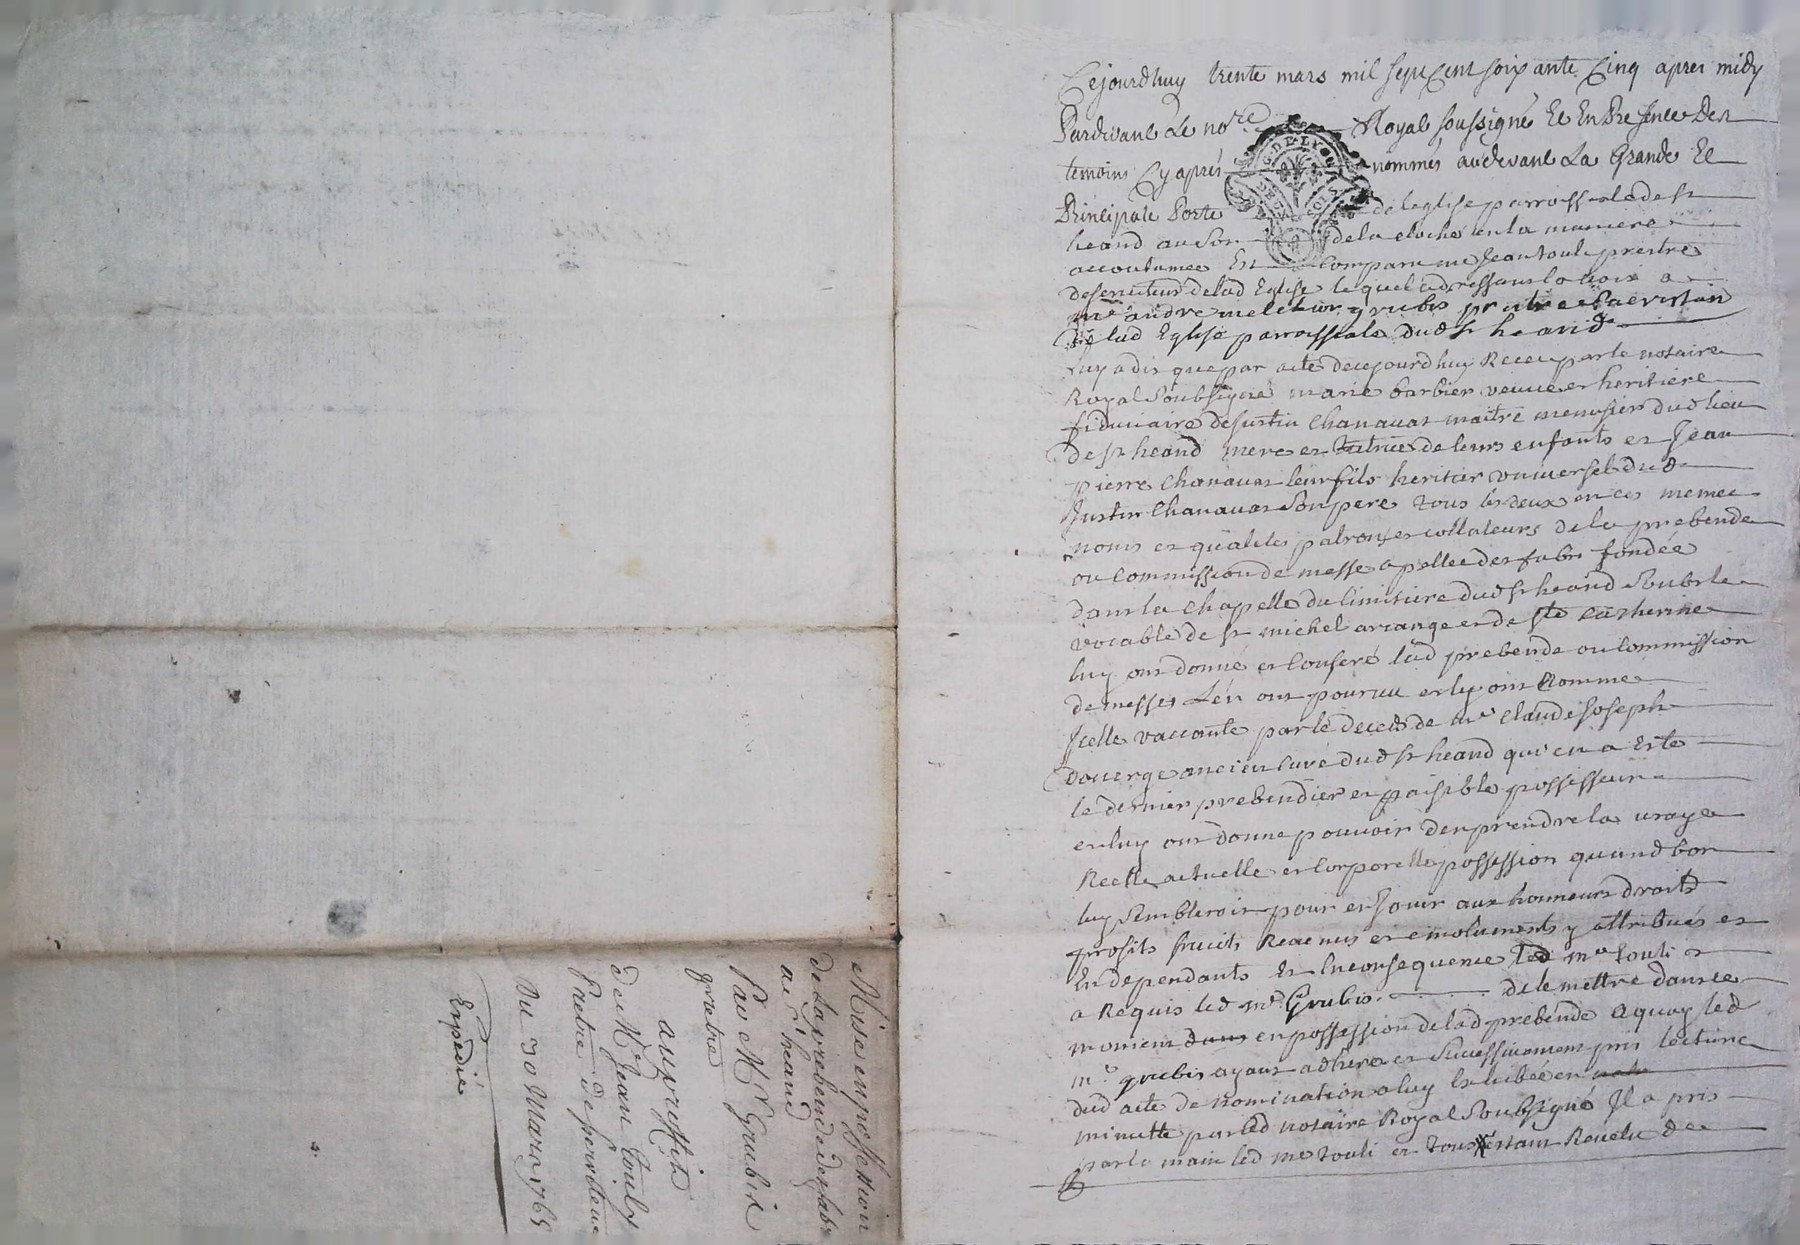 Cejourdhuy trente mars mil sept Cent soixante Cinq apres midy
Pardevant Le no.re Royal soussigné Et En Presence Des
temoins Cy apres nommés audevant La Grande Et
Principale Porte de leglise parroissialle de st
heand au Son de la cloche en la maniere
accoutumee Est Comparu me Jean touli prestre
deserviteur delad Eglise lequel adressant la voix a
me andre melchior grubis prestre Sacristain
de lad Eglise parroissiale dud st heand
Luy a dit que par acte decejourdhuy Receu par le notaire
Royal Soubsigné marie barbier veuve et heritiere
fiduciaire de justin Chanavat maitre menusier dud lieu
de st heand mere et tutrice de leurs enfants et Jean
pierre Chanavat leur fils heritier universel dud
Justin Chanavat Son pere tous les deux en ces memes
noms et qualites patrons et collateurs de la prebende
ou Commission de messe apellee des fabre fondée
dans la Chapelle du Cimitiere dud st heand Soubs le
vocable de st michel arcange et de ste catherine
luy ont donné et Conferé lad prebende ou Commission
de messes L'en ont pourvu et ly ont Nommé
Icelle vaccante par le deceds de me Claude Joseph
Douerge ancien Curé dud st heand qui en a Esté
le dernier prebendier et paisible possesseur
et luy ont donne pouvoir d'en prendre la vraye
Reelle actuelle et Corporelle possession quand bon
luy Sembleroit pour en Jouir aux honneurs droits
profits fruits Revenus et emoluments y attribués et
En dependants Et En consequence led me touli
a Requis led me Grubis. de le mettre dans ce
moment dans en possession de lad prebende a quoy led
me grubis ayant adhéré et Successivement pris lecture
dud acte de nomination a luy Exhibée en
minutte par led notaire Royal Soubsigné Il a pris
par la main led me touli et tous estant Revetu de
Mise en possession
de La prebende des fabre
a st heand
Par Mr Grubis
pretre
au proffit
de Me Jean Touly
Pretre de
Du 30 Mars 1765
Expedié